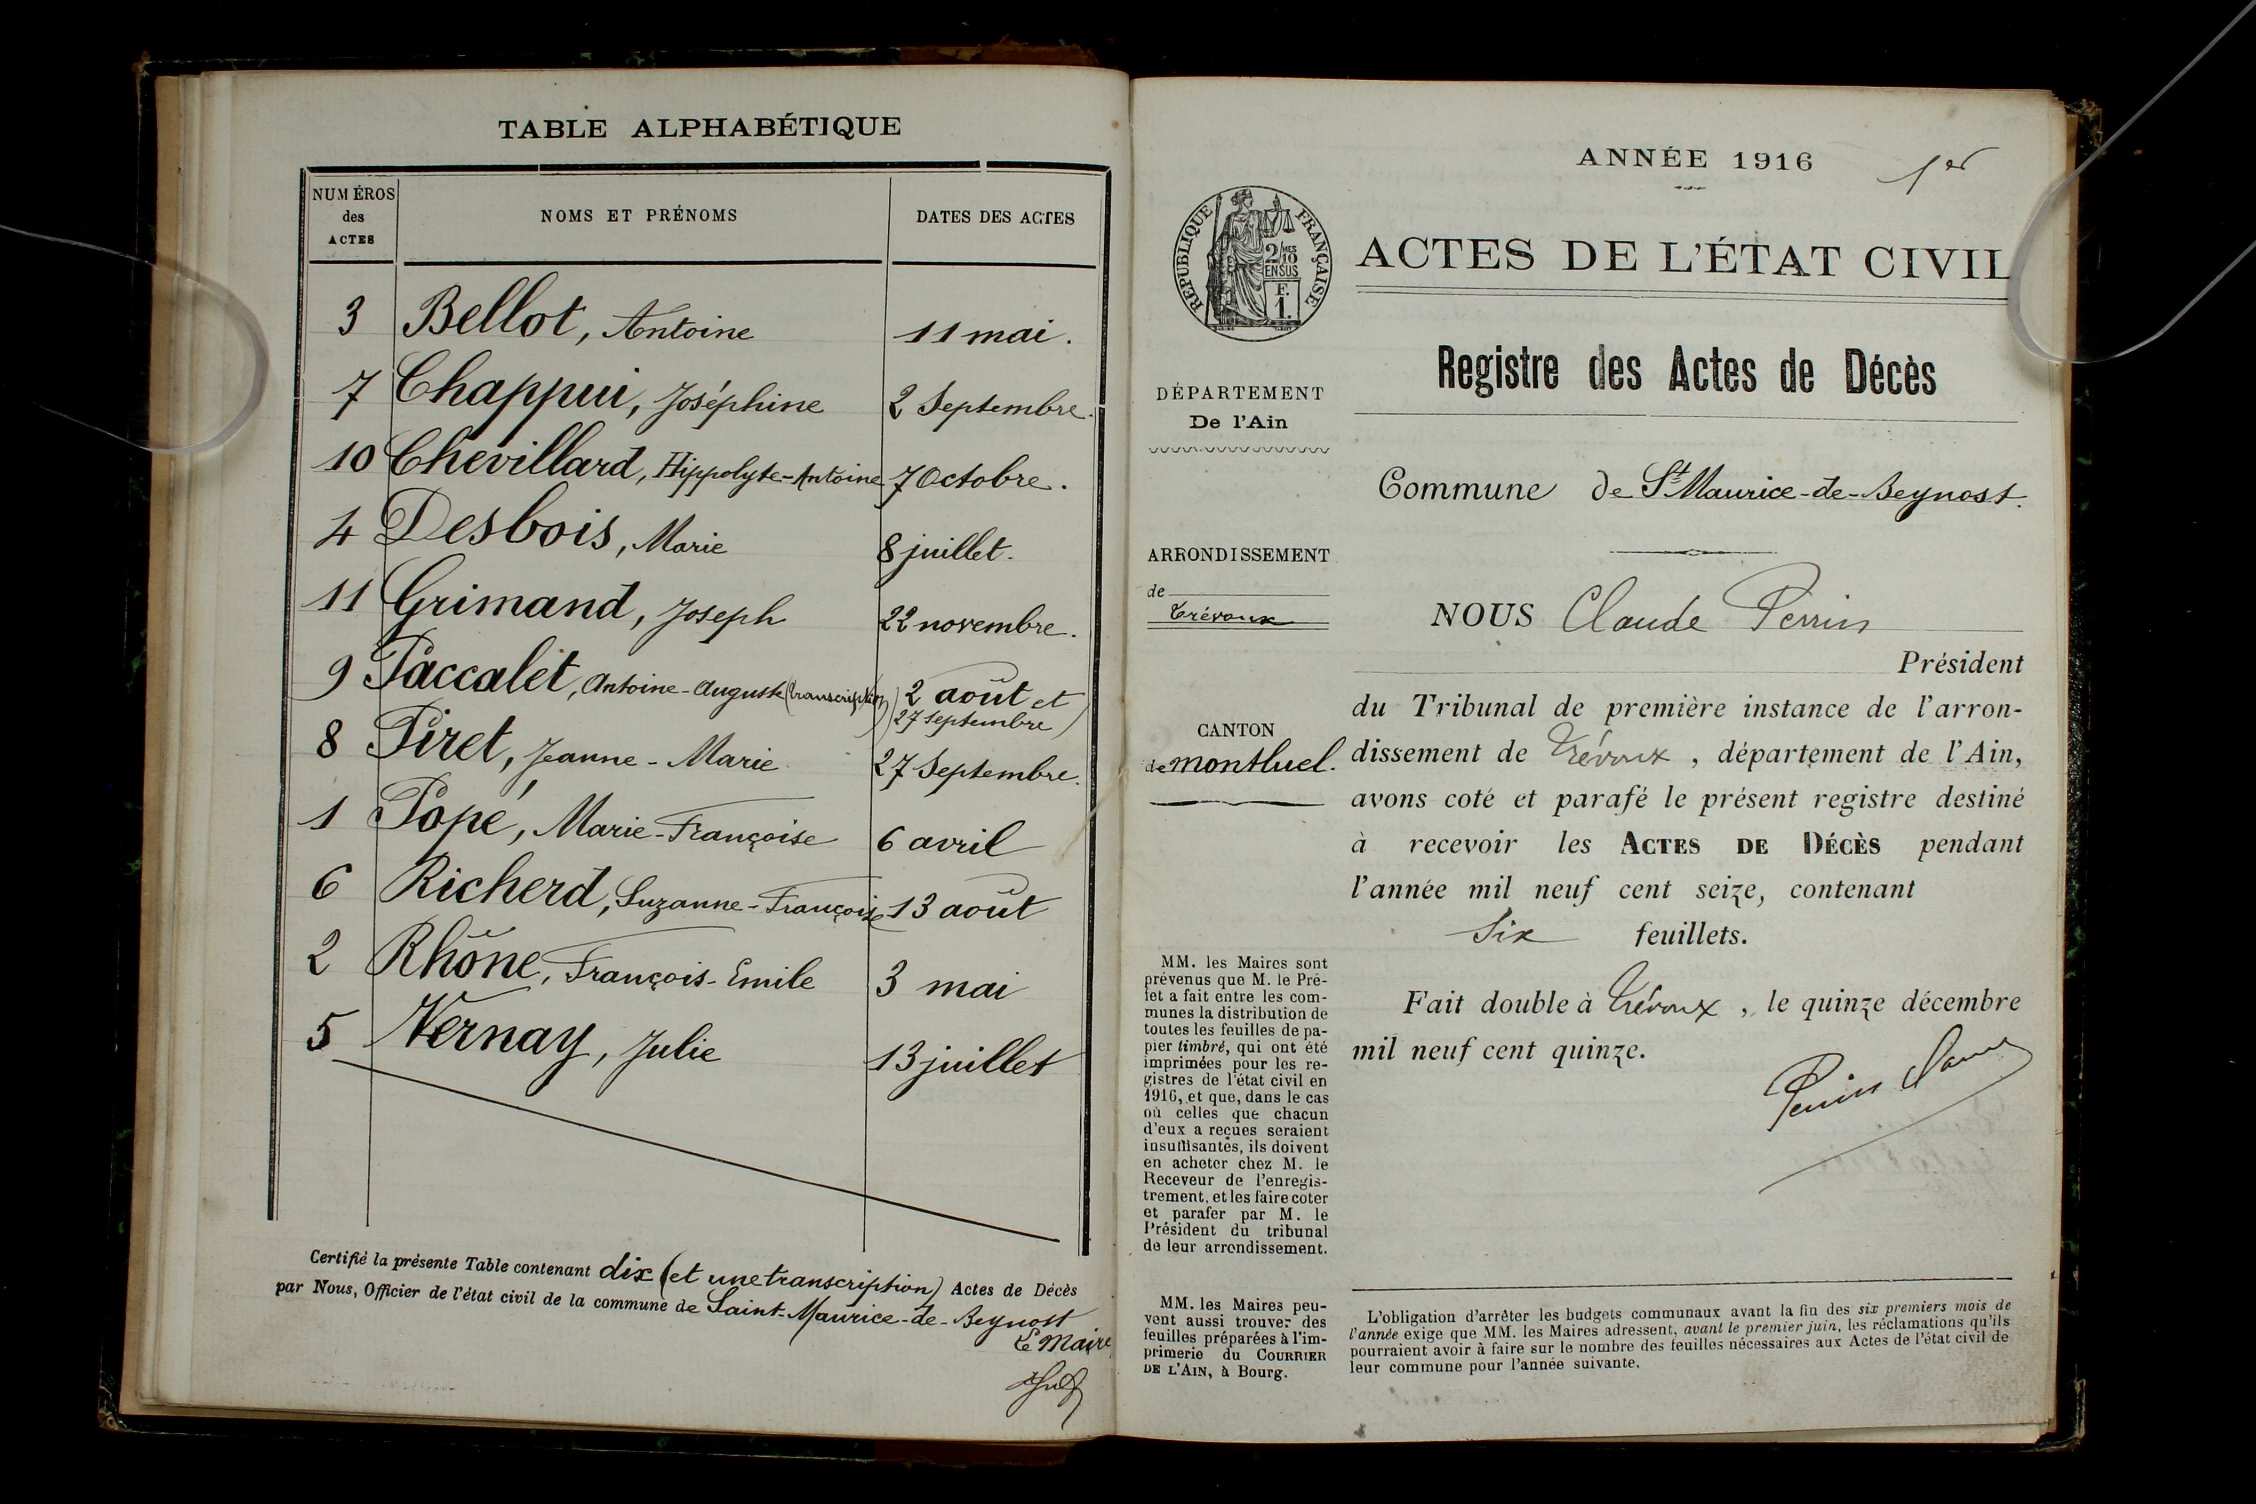 TABLE ALPHABÉTIQUE
NUMÉROS
des
ACTES
NOMS ET PRÉNOMS
DATES DES ACTES
3 Bellot, Antoine 11 mai.
7 Chappui, Joséphine 2 Septembre.
10 Chevillard, Hippolyte-Antoine 7 Octobre.
4 Desbois, Marie 8 juillet.
11 Grimand, Joseph 22 novembre.
9 Paccalet, Antoine-Auguste (transcription) 2 août et
27 septembre)
8 Piret, Jeanne-Marie 27 Septembre.
1 Popé, Marie-Françoise 6 avril
6 Richerd, Suzanne-Françoise 13 août
2 Rhône, François-Emile 3 mai
5 Vernay, Julie 13 juillet
Certifié la présente Table contenant dix (et une transcription) Actes de Décès
par Nous, Officier de l'état civil de la commune de Saint-Maurice-de-Beynost
Le Maire,
ANNÉE 1916
1er
RÉPUBLIQUE FRANÇAISE
2/MES
10
EN SUS
F.
1.
ACTES DE L'ÉTAT CIVIL
Registre des Actes de Décès
DÉPARTEMENT
De l'Ain
Commune de St Maurice-de-Beynost.
ARRONDISSEMENT
de
Trévoux
CANTON
de Montluel.
NOUS Claude Perrin
Président
du Tribunal de première instance de l'arron-
dissement de Trévoux, département de l'Ain,
avons coté et parafé le présent registre destiné
à recevoir les ACTES DE DÉCÈS pendant
l'année mil neuf cent seize, contenant
Six feuillets.
Fait double à Trévoux, le quinze décembre
mil neuf cent quinze.
Perrin Claude
MM. les Maires sont
prévenus que M. le Pré-
fet a fait entre les com-
munes la distribution de
toutes les feuilles de pa-
pier timbré, qui ont été
imprimées pour les re-
gistres de l'état civil en
1916, et que, dans le cas
où celles que chacun
d'eux a reçues seraient
insuffisantes, ils doivent
en acheter chez M. le
Receveur de l'enregis-
trement, et les faire coter
et parafer par M. le
Président du tribunal
de leur arrondissement.
MM. les Maires peu-
vent aussi trouver des
feuilles préparées à l'im-
primerie du COURRIER
DE L'AIN, à Bourg.
L'obligation d'arrêter les budgets communaux avant la fin des six premiers mois de
l'année exige que MM. les Maires adressent, avant le premier juin, les réclamations qu'ils
pourraient avoir à faire sur le nombre des feuilles nécessaires aux Actes de l'état civil de
leur commune pour l'année suivante.